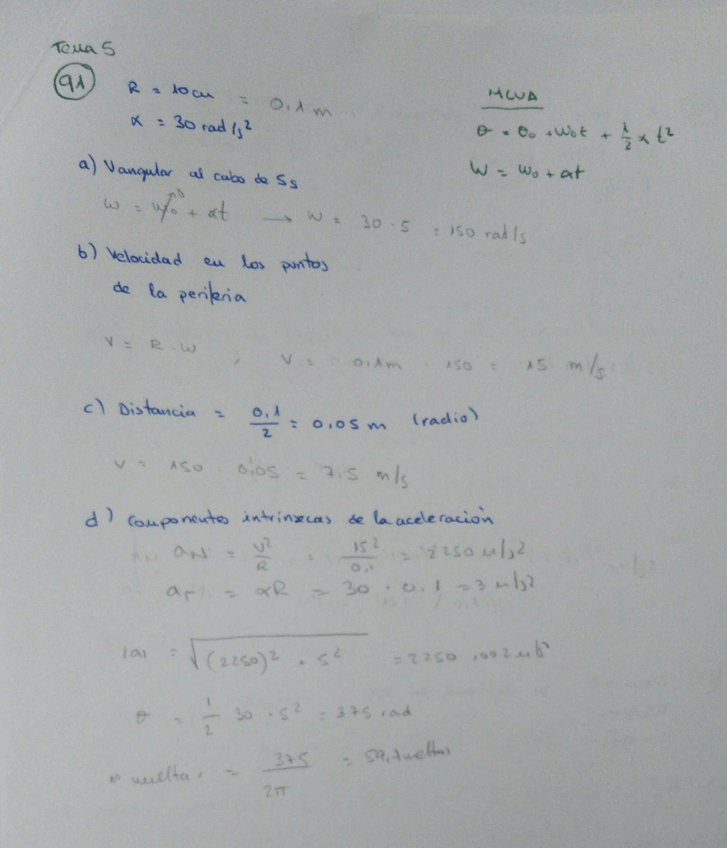 Tema 5
91
R = 10cm = 0,1 m
α = 30 rad/s²
MCUA
θ = θ₀ + ω₀t + 1/2 α t²
W = W₀ + αt
a) Vangular al cabo de 5s
W = W₀ + αt → W = 30 · 5 = 150 rad/s
b) Velocidad en los puntos
de la periferia
V = R · W ; V = 0.1m · 150 = 15 m/s
c) Distancia = 0,1/2 = 0,05 m (radio)
V = 150 · 0,05 = 7.5 m/s
d) Componentes intrínsecas de la aceleración
aN = V²/R = 15²/0,1 = 2250 m/s²
aT = αR = 30 · 0.1 = 3 m/s²
|a| = √(2250)² + 5² = 2250,002 m/s²
θ = 1/2 30 · 5² = 375 rad
vueltas = 375/2π = 59,7 vueltas